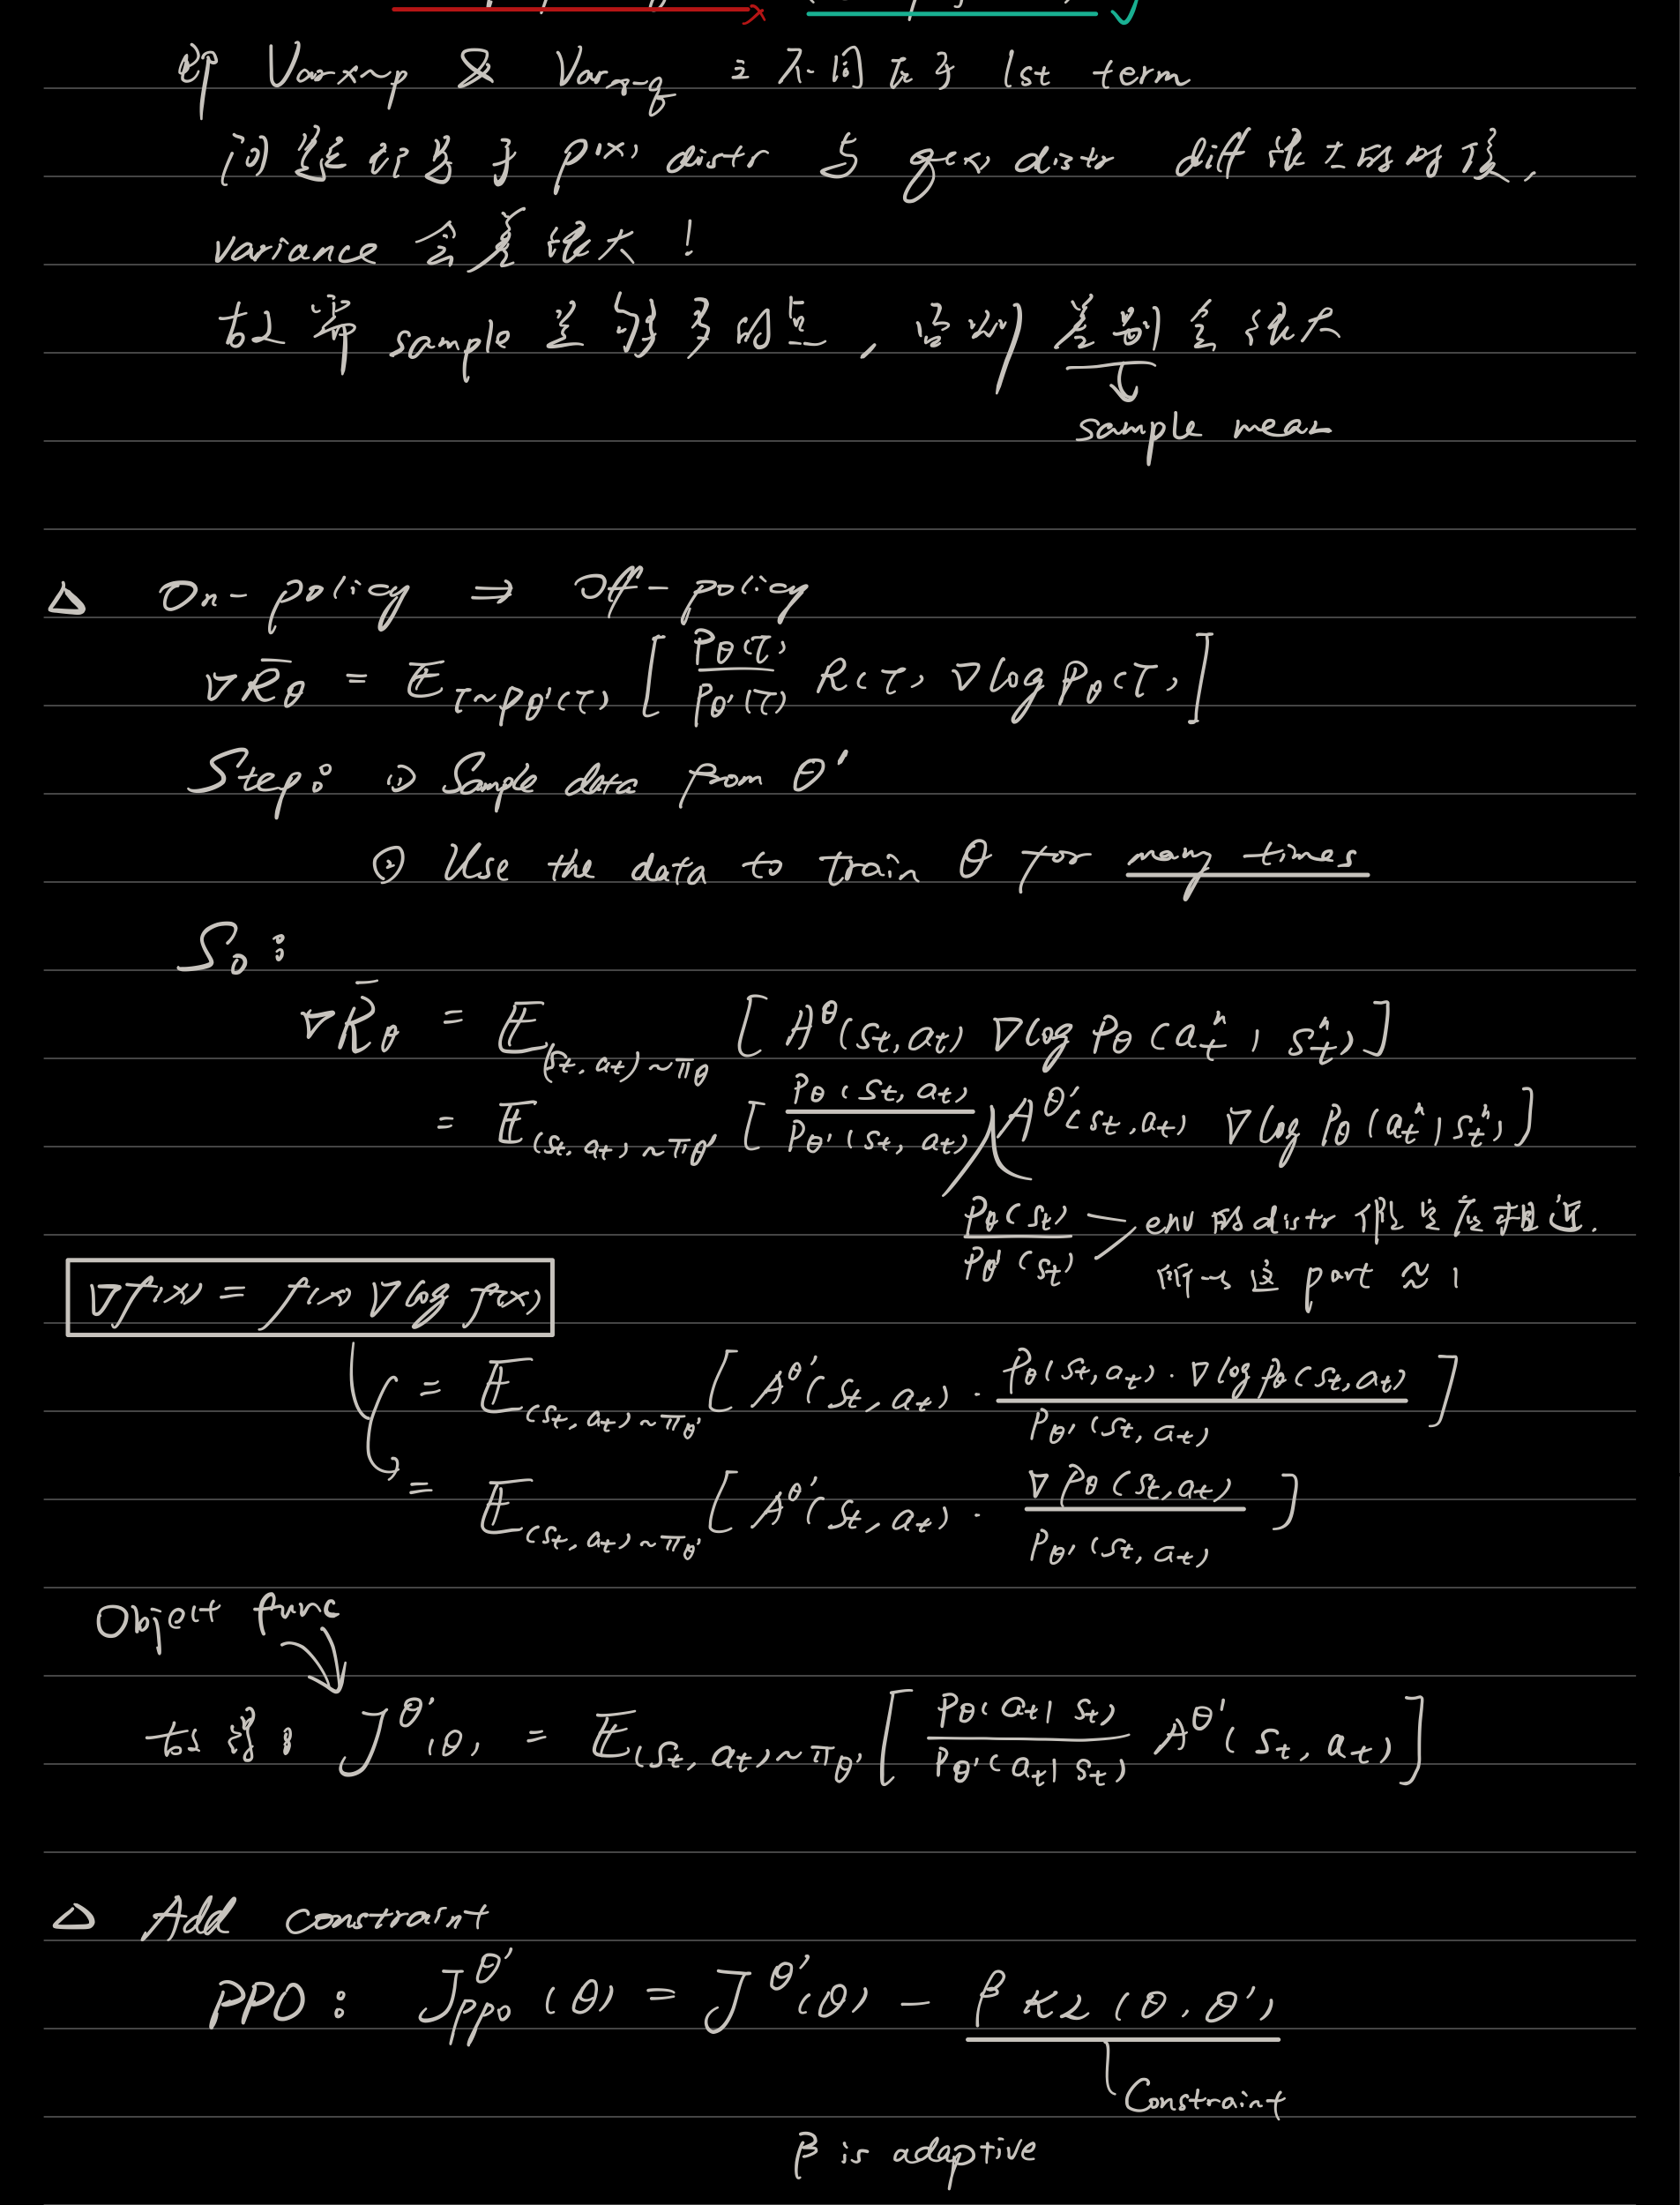 即 Var x~p & Var x~q 之不同在于 1st term
问题就当于 p(x) distr 与 q(x) distr diff 很大的时候,
variance 会差很大 !
故需 sample 足够多的点 , 否则差别会很大
sample mean
△ On-policy ⇒ Off-policy
∇R̄θ = E τ~pθ'(τ) [ pθ(τ) / pθ'(τ) R(τ) ∇log pθ(τ) ]
Step: ① Sample data from θ'
② Use the data to train θ for many times
So:
∇R̄θ = E (st, at)~πθ [ A^θ(st, at) ∇log Pθ(at^n | st^n) ]
= E (st, at)~πθ' [ Pθ(st, at) / Pθ'(st, at) A^θ'(st, at) ∇log Pθ(at^n | st^n) ]
Pθ(st) / Pθ'(st) — env的distr 假定应相近.
所以这 part ≈ 1
∇f(x) = f(x) ∇log f(x)
= E (st, at)~πθ' [ A^θ'(st, at) · Pθ(st, at) · ∇log pθ(st, at) / Pθ'(st, at) ]
= E (st, at)~πθ' [ A^θ'(st, at) · ∇Pθ(st, at) / Pθ'(st, at) ]
Object func
故得: J^θ'(θ) = E (st, at)~πθ' [ Pθ(at | st) / Pθ'(at | st) A^θ'(st, at) ]
△ Add constraint
PPO: J_PPO^θ'(θ) = J^θ'(θ) - β KL(θ, θ')
Constraint
β is adaptive